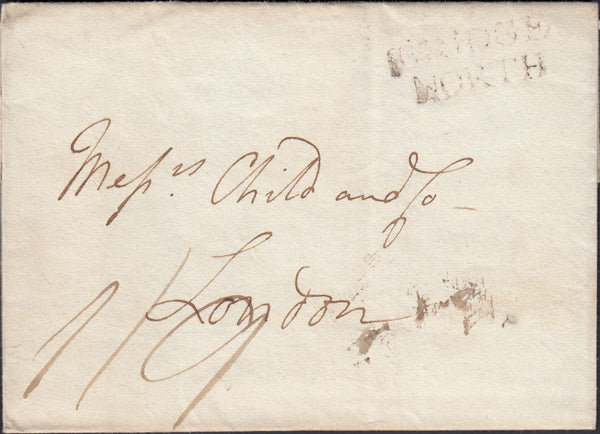 BRIDGE
NORTH
Meſsrs. Child and Co –
London
1/9